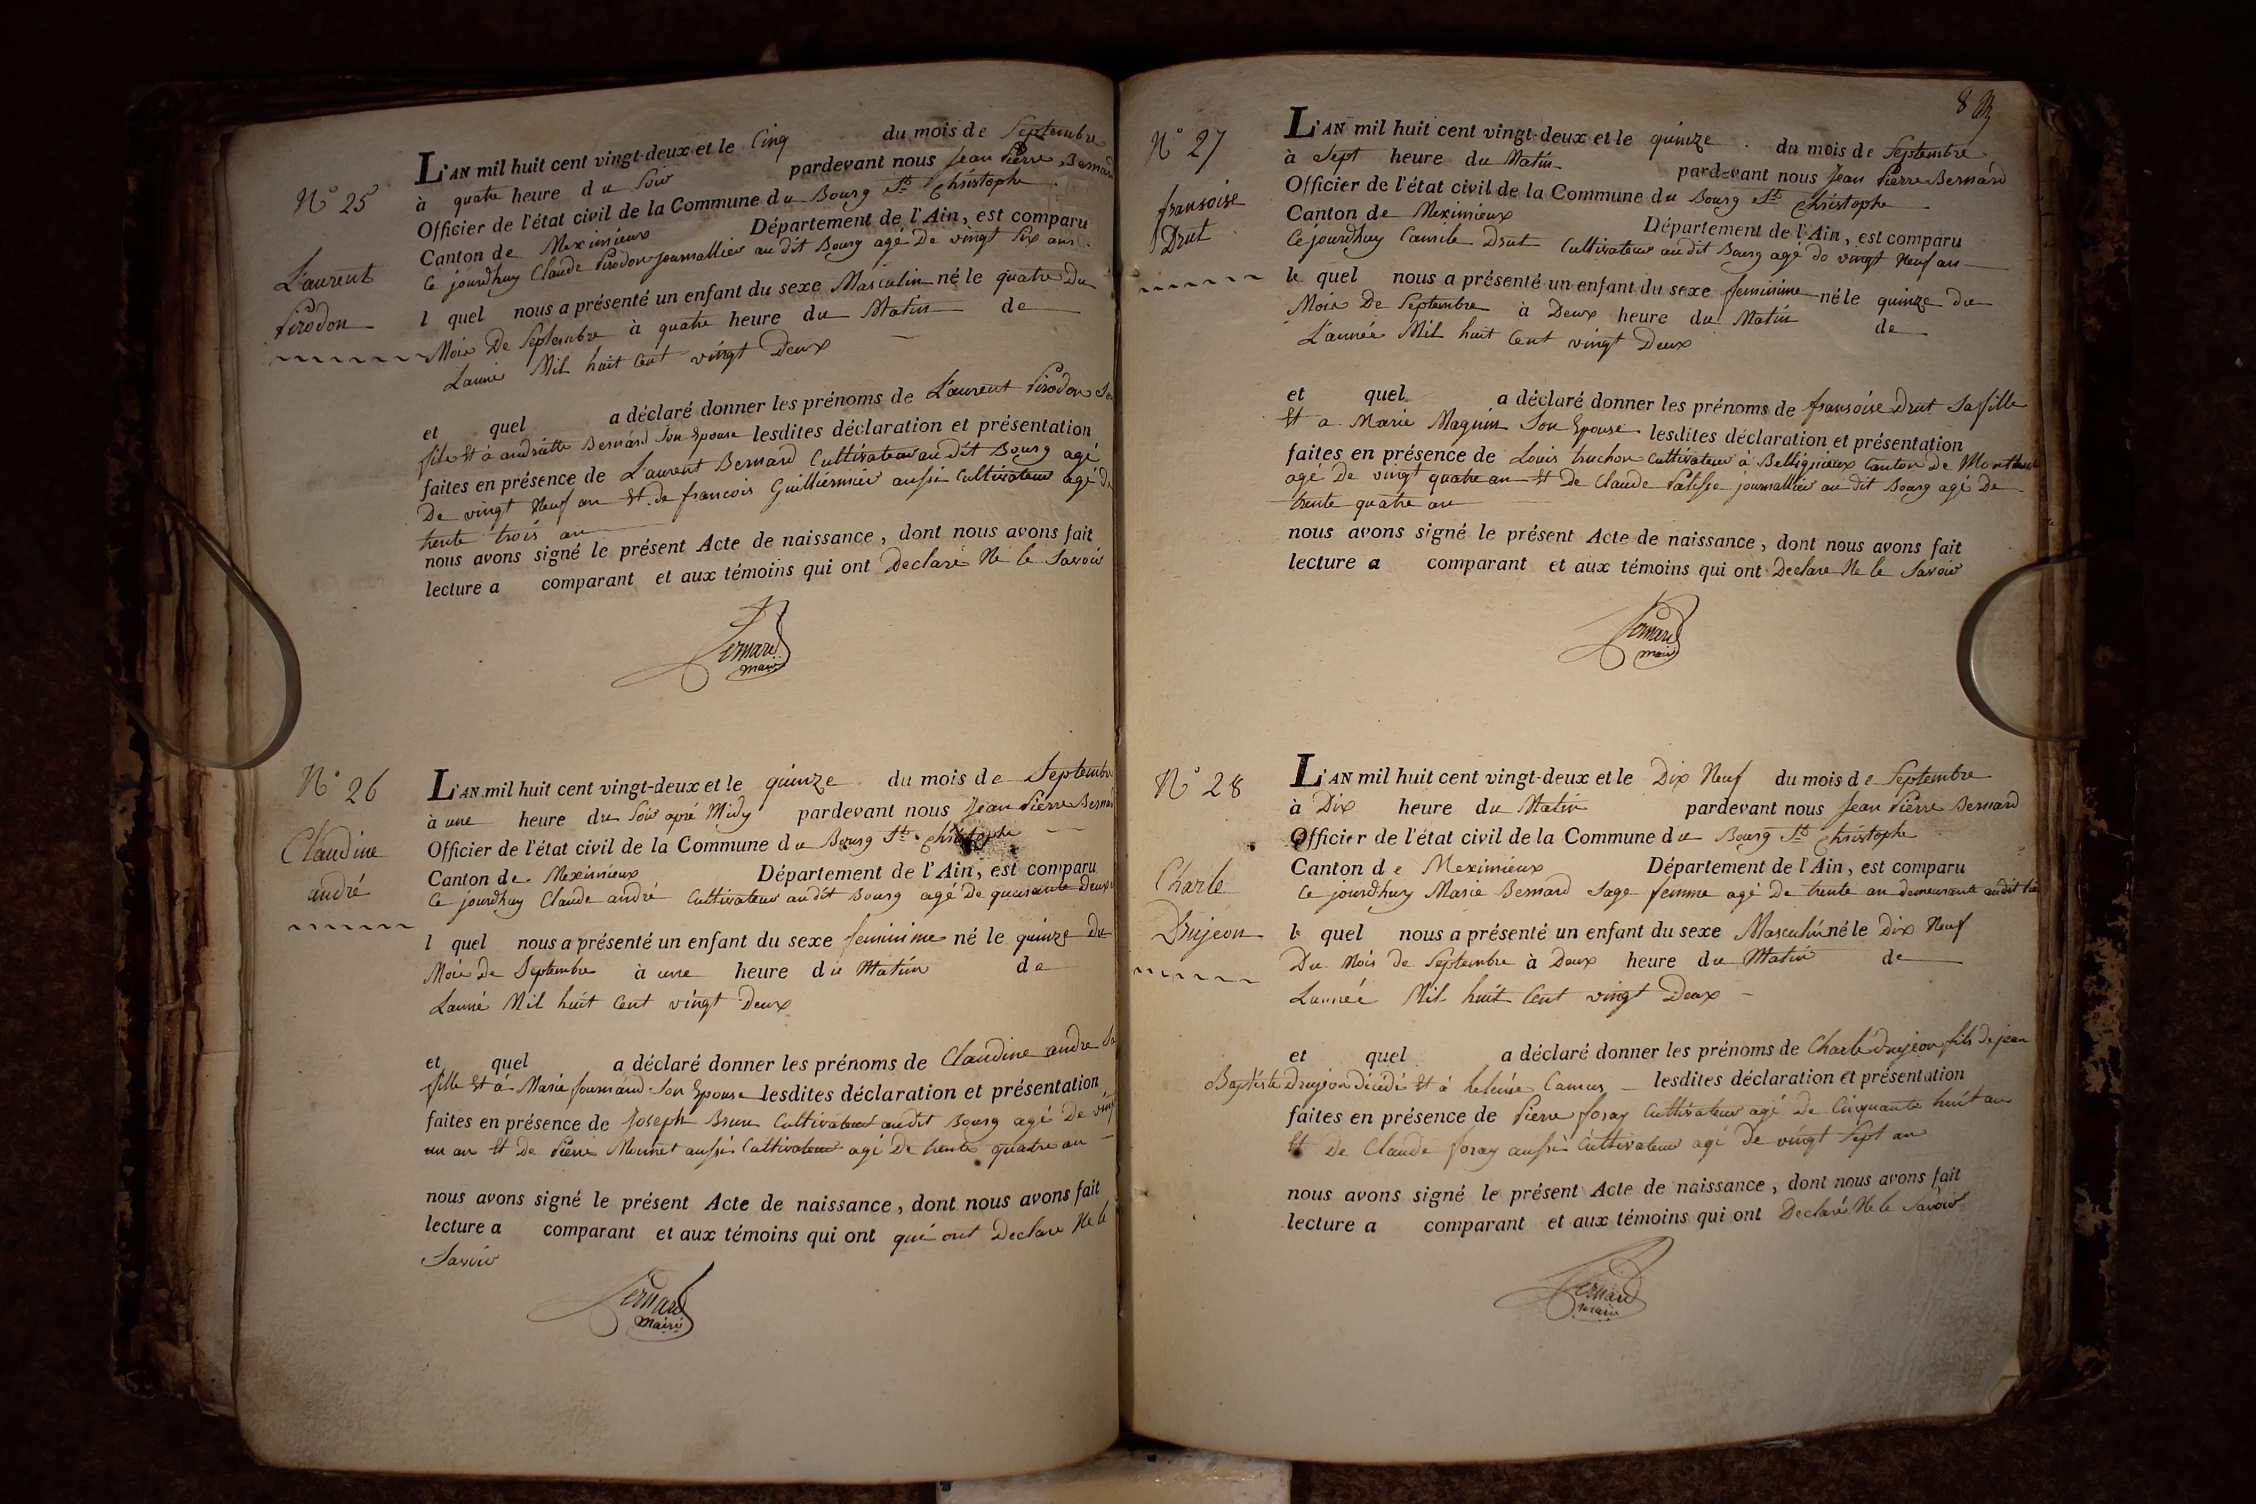 N° 25
Laurent
Pirodon
L'AN mil huit cent vingt-deux et le Cinq du mois de Septembre
à quatre heure du Soir pardevant nous Jean Pierre Bernard
Officier de l'état civil de la Commune du Bourg St Christophe
Canton de Meximieux Département de l'Ain, est comparu
Ce jourdhuy Claude Pirodon journallier au dit Bourg agé De vingt Six ans
l quel nous a présenté un enfant du sexe Masculin né le quatre Du
Mois De Septembre à quatre heure du Matin de
Lanné Mil huit Cent vingt Deux
et quel a déclaré donner les prénoms de Laurent Pirodon Son
fils Et à andréatte Bernard Son Epouse lesdites déclaration et présentation
faites en présence de Laurent Bernard Cultivateur au dit Bourg agé
De vingt Neuf an Et de francois Guilliermier aussi Cultivateur agé de
trente trois an
nous avons signé le présent Acte de naissance, dont nous avons fait
lecture a comparant et aux témoins qui ont Declaré Ne le Savoir
Bernard
maire
N° 26
Claudine
andré
L'AN mil huit cent vingt-deux et le quinze du mois de Septembre
à une heure du Soir apré Midy pardevant nous Jean Pierre Bernard
Officier de l'état civil de la Commune du Bourg St Christophe
Canton de Meximieux Département de l'Ain, est comparu
Ce jourdhuy Claude andré Cultivateur au dit Bourg agé De quarante Deux
l quel nous a présenté un enfant du sexe feminime né le quinze du
Mois De Septembre à une heure du Matin de
Lanné Mil huit Cent vingt Deux
et quel a déclaré donner les prénoms de Claudine andre Sa
fille Et à Marie fournand Son Epouse lesdites déclaration et présentation
faites en présence de Joseph Brun Cultivateur au dit Bourg agé De vingt
un an Et De Pierre Monnet aussi Cultivateur agé De trente quatre an
nous avons signé le présent Acte de naissance, dont nous avons fait
lecture a comparant et aux témoins qui ont qui ont Declare Ne le
Savoir
Bernard
Maire
8
N° 27
fransoise
Drut
L'AN mil huit cent vingt-deux et le quinze du mois de Septembre
à Sept heure du Matin pardevant nous Jean Pierre Bernard
Officier de l'état civil de la Commune du Bourg St Christophe
Canton de Meximieux Département de l'Ain, est comparu
Ce jourdhuy Camile Drut Cultivateur au dit Bourg agé de vingt Neuf an
le quel nous a présenté un enfant du sexe feminime né le quinze du
Mois De Septembre à Deux heure du Matin de
L'année Mil huit Cent vingt Deux
et quel a déclaré donner les prénoms de fransoise Drut Sa fille
Et a Marie Magnin Son Epouse lesdites déclaration et présentation
faites en présence de Louis truchon Cultivateur à Bellignieux Canton de
agé De vingt quatre an Et De Claude Palisse journallier au dit Bourg agé De
trente quatre an
nous avons signé le présent Acte de naissance, dont nous avons fait
lecture a comparant et aux témoins qui ont Declare Ne le Savoir
Bernard
maire
N° 28
Charle
Drujeon
L'AN mil huit cent vingt-deux et le Dix Neuf du mois de Septembre
à Dix heure du Matin pardevant nous Jean Pierre Bernard
Officier de l'état civil de la Commune du Bourg St Christophe
Canton de Meximieux Département de l'Ain, est comparu
Ce jourdhuy Marie Bernard Sage femme agé De trente an demeurante audit
le quel nous a présenté un enfant du sexe Masculin né le Dix Neuf
Du Mois de Septembre à Deux heure du Matin de
Lanneé Mil huit Cent vingt Deux
et quel a déclaré donner les prénoms de Charle Drujeon fils De jean
Baptiste Drujeon décédé Et à heleine Camus lesdites déclaration et présentation
faites en présence de Pierre foray Cultivateur agé De Cinquante huit an
Et De Claude foray aussi Cultivateur agé De vingt Sept an
nous avons signé le présent Acte de naissance, dont nous avons fait
lecture a comparant et aux témoins qui ont Declaré Ne le Savoir
Bernard
maire